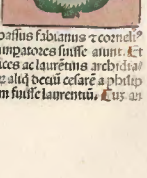 passus fabianus ⁊ corneli⁹
imperatores fuisse aiunt. Et
ices ac laurētius archidia/
aliq̄ deciū cesarē a philip
m fuisse laurentiū. Eux